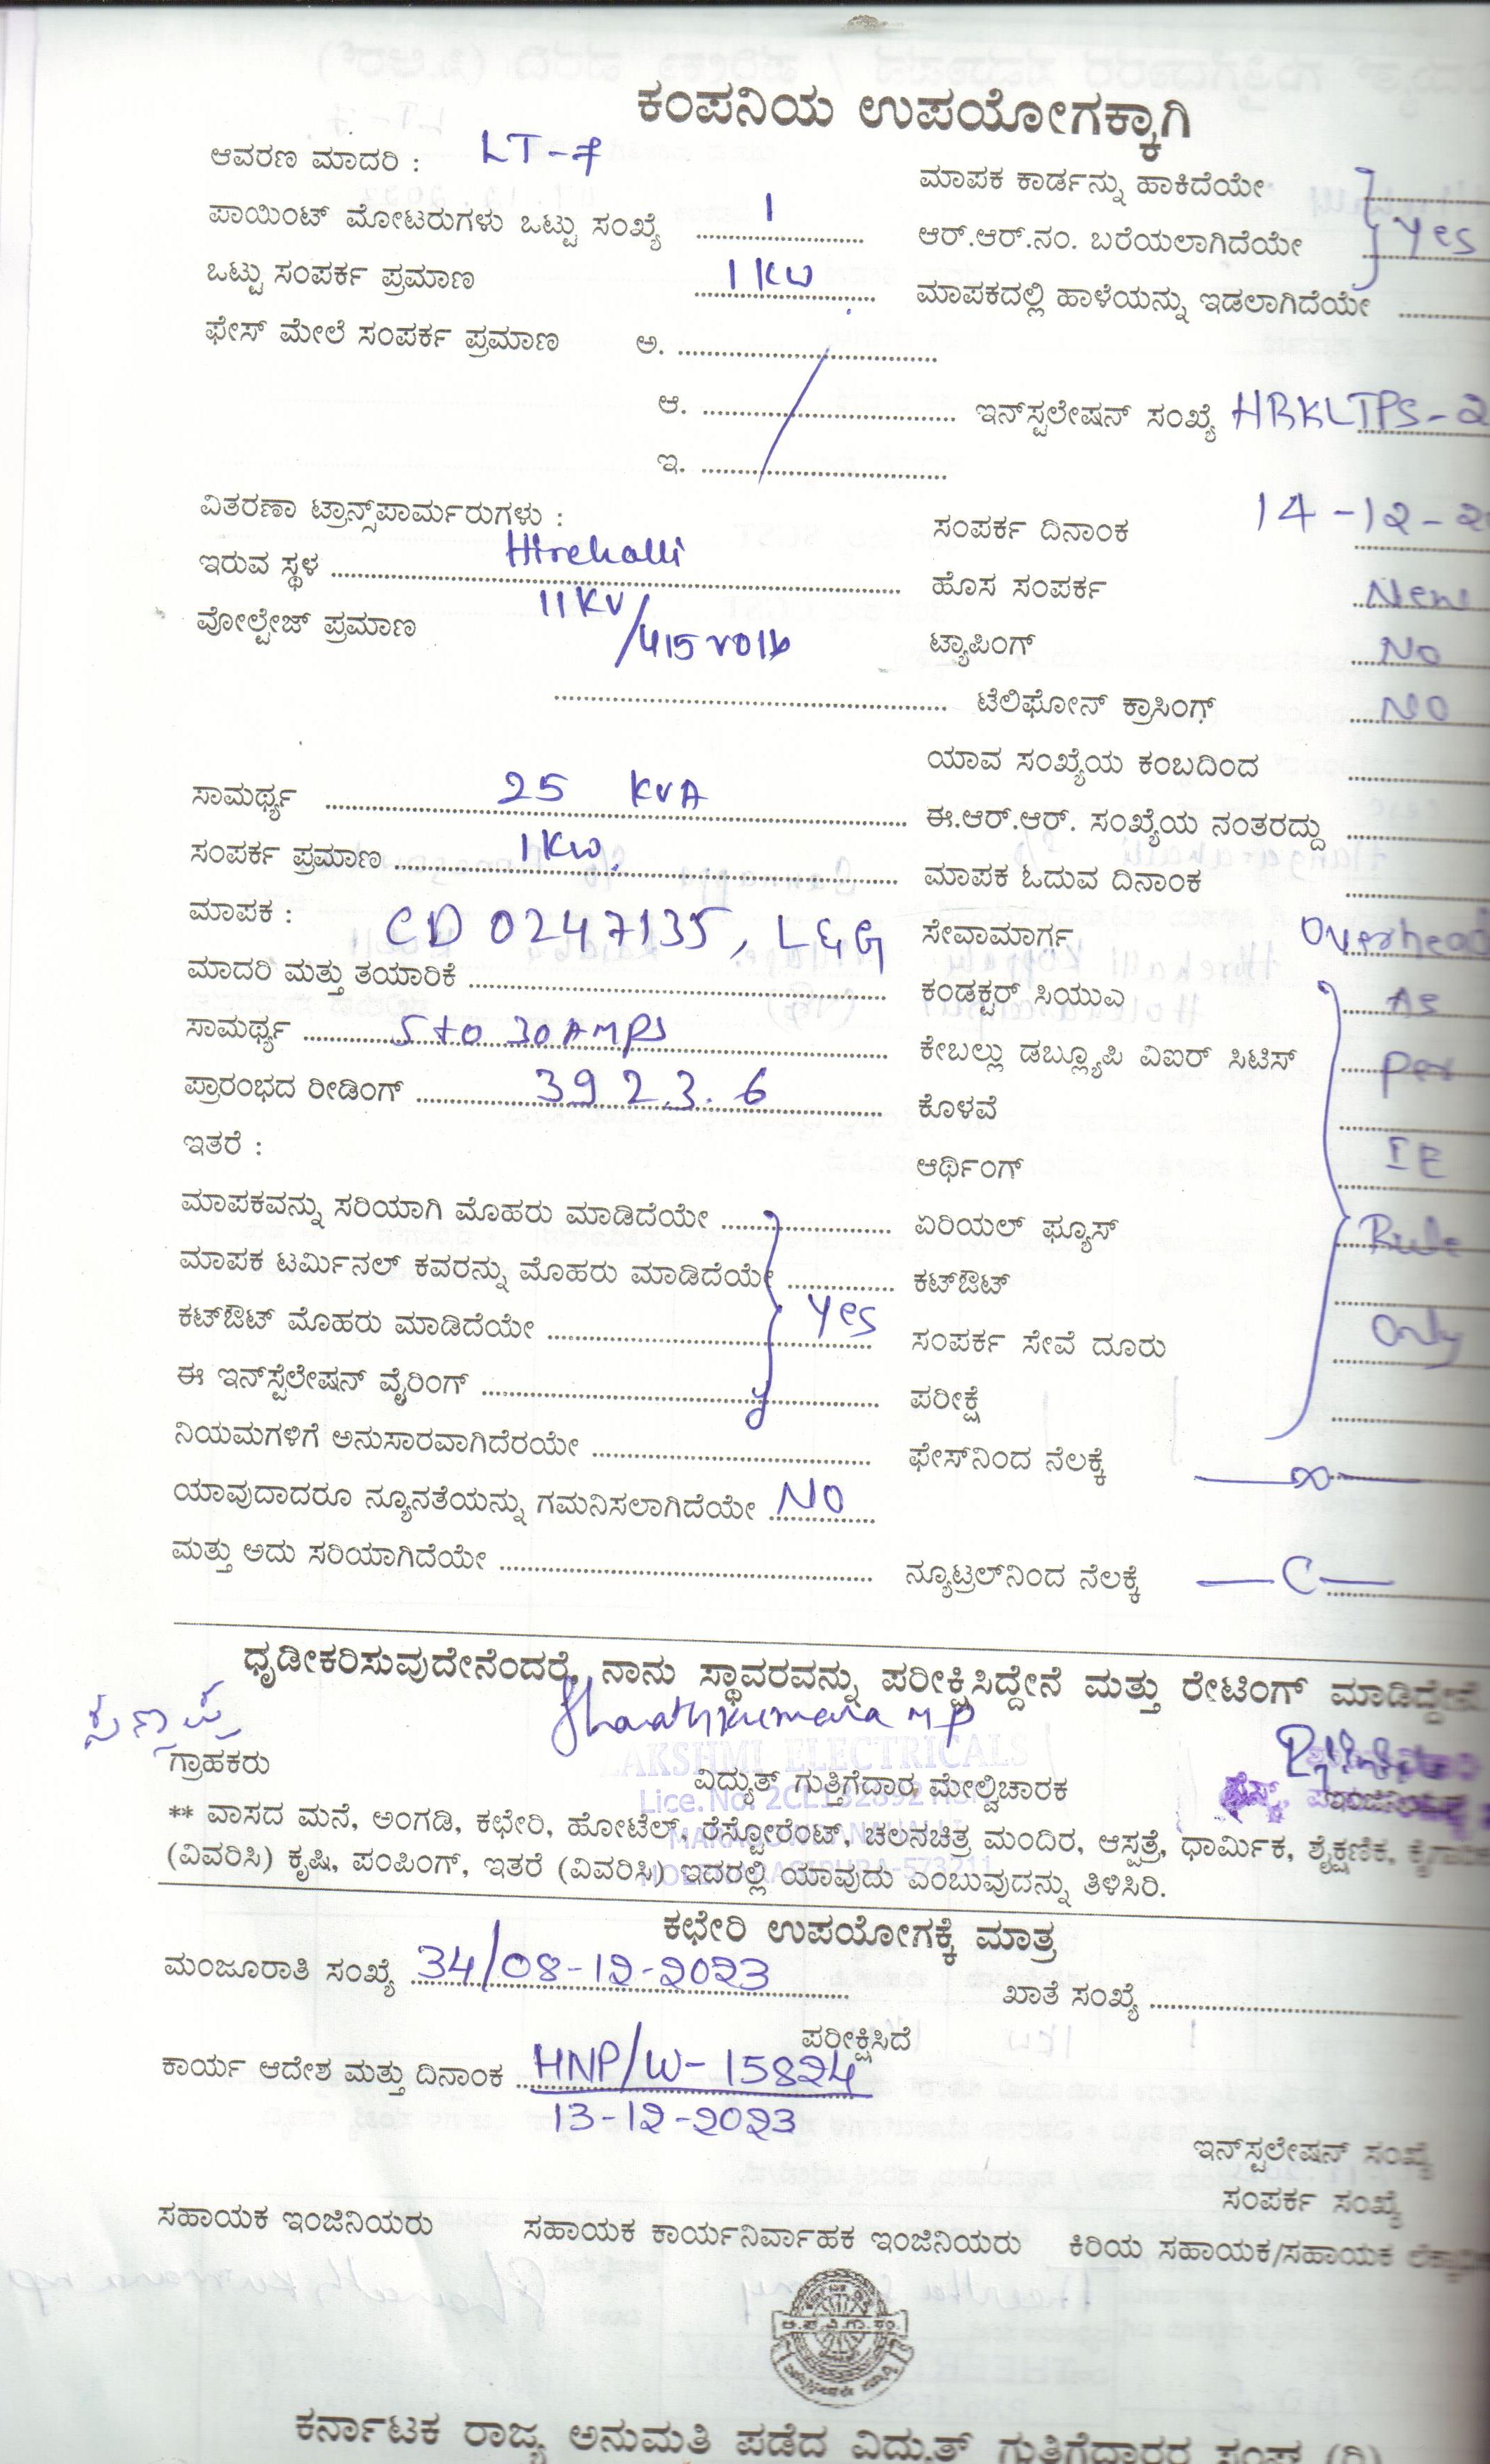 ಕಂಪನಿಯ ಉಪಯೋಗಕ್ಕಾಗಿ
ಆವರಣ ಮಾದರಿ : LT-7
ಮಾಪಕ ಕಾರ್ಡನ್ನು ಹಾಕಿದೆಯೇ
ಪಾಯಿಂಟ್ ಮೋಟರುಗಳು ಒಟ್ಟು ಸಂಖ್ಯೆ 1
ಆರ್.ಆರ್.ನಂ. ಬರೆಯಲಾಗಿದೆಯೇ Yes
ಒಟ್ಟು ಸಂಪರ್ಕ ಪ್ರಮಾಣ 1 KW
ಮಾಪಕದಲ್ಲಿ ಹಾಳೆಯನ್ನು ಇಡಲಾಗಿದೆಯೇ
ಫೇಸ್ ಮೇಲೆ ಸಂಪರ್ಕ ಪ್ರಮಾಣ ಅ.
ಆ. ಇನ್‌ಸ್ಟಲೇಷನ್ ಸಂಖ್ಯೆ HRKLTPS-2
ಇ.
ವಿತರಣಾ ಟ್ರಾನ್ಸ್‌ಪಾರ್ಮರುಗಳು :
ಸಂಪರ್ಕ ದಿನಾಂಕ 14-12-2
ಇರುವ ಸ್ಥಳ Hirehalli
ಹೊಸ ಸಂಪರ್ಕ New
ವೋಲ್ಟೇಜ್ ಪ್ರಮಾಣ 11KV/415 volt
ಟ್ಯಾಪಿಂಗ್ No
ಟೆಲಿಫೋನ್ ಕ್ರಾಸಿಂಗ್ NO
ಯಾವ ಸಂಖ್ಯೆಯ ಕಂಬದಿಂದ
ಸಾಮರ್ಥ್ಯ 25 KVA
ಈ.ಆರ್.ಆರ್. ಸಂಖ್ಯೆಯ ನಂತರದ್ದು
ಸಂಪರ್ಕ ಪ್ರಮಾಣ 1KW.
ಮಾಪಕ ಓದುವ ದಿನಾಂಕ
ಮಾಪಕ : CD 0247135, L&G
ಸೇವಾಮಾರ್ಗ Overhead
ಮಾದರಿ ಮತ್ತು ತಯಾರಿಕೆ
ಕಂಡಕ್ಟರ್ ಸಿಯುಎ As
ಸಾಮರ್ಥ್ಯ 5 to 30 AMPS
ಕೇಬಲ್ಲು ಡಬ್ಲ್ಯೂಪಿ ವಿಐರ್ ಸಿಟಿಸ್ Per
ಪ್ರಾರಂಭದ ರೀಡಿಂಗ್ 3923.6
ಕೊಳವೆ
ಇತರೆ :
ಆರ್ಥಿಂಗ್ IE
ಮಾಪಕವನ್ನು ಸರಿಯಾಗಿ ಮೊಹರು ಮಾಡಿದೆಯೇ
ಏರಿಯಲ್ ಫ್ಯೂಸ್ Rule
ಮಾಪಕ ಟರ್ಮಿನಲ್ ಕವರನ್ನು ಮೊಹರು ಮಾಡಿದೆಯೇ
ಕಟ್‌ಔಟ್
ಕಟ್‌ಔಟ್ ಮೊಹರು ಮಾಡಿದೆಯೇ Yes
ಸಂಪರ್ಕ ಸೇವೆ ದೂರು Only
ಈ ಇನ್‌ಸ್ಟೆಲೇಷನ್ ವೈರಿಂಗ್
ಪರೀಕ್ಷೆ
ನಿಯಮಗಳಿಗೆ ಅನುಸಾರವಾಗಿದೆರಯೇ
ಫೇಸ್‌ನಿಂದ ನೆಲಕ್ಕೆ ∞
ಯಾವುದಾದರೂ ನ್ಯೂನತೆಯನ್ನು ಗಮನಿಸಲಾಗಿದೆಯೇ NO
ಮತ್ತು ಅದು ಸರಿಯಾಗಿದೆಯೇ
ನ್ಯೂಟ್ರಲ್‌ನಿಂದ ನೆಲಕ್ಕೆ C
ಧೃಡೀಕರಿಸುವುದೇನೆಂದರೆ, ನಾನು ಸ್ಥಾವರವನ್ನು ಪರೀಕ್ಷಿಸಿದ್ದೇನೆ ಮತ್ತು ರೇಟಿಂಗ್ ಮಾಡಿದ್ದೇನೆ.
AKSHMI ELECTRICALS
ಗ್ರಾಹಕರು
ವಿದ್ಯುತ್ ಗುತ್ತಿಗೆದಾರ, ಮೇಲ್ವಿಚಾರಕ
** ವಾಸದ ಮನೆ, ಅಂಗಡಿ, ಕಛೇರಿ, ಹೋಟೆಲ್, ರೆಸ್ಟೋರೆಂಟ್, ಚಲನಚಿತ್ರ ಮಂದಿರ, ಆಸ್ಪತ್ರೆ, ಧಾರ್ಮಿಕ, ಶೈಕ್ಷಣಿಕ,
(ವಿವರಿಸಿ) ಕೃಷಿ, ಪಂಪಿಂಗ್, ಇತರೆ (ವಿವರಿಸಿ) ಇದರಲ್ಲಿ ಯಾವುದು ಎಂಬುವುದನ್ನು ತಿಳಿಸಿರಿ.
ಕಛೇರಿ ಉಪಯೋಗಕ್ಕೆ ಮಾತ್ರ
ಮಂಜೂರಾತಿ ಸಂಖ್ಯೆ 34/08-12-2023
ಖಾತೆ ಸಂಖ್ಯೆ
ಪರೀಕ್ಷಿಸಿದೆ
ಕಾರ್ಯ ಆದೇಶ ಮತ್ತು ದಿನಾಂಕ HNP/W-15824
13-12-2023
ಇನ್‌ಸ್ಟಲೇಷನ್ ಸಂಖ್ಯೆ
ಸಂಪರ್ಕ ಸಂಖ್ಯೆ
ಸಹಾಯಕ ಇಂಜಿನಿಯರು ಸಹಾಯಕ ಕಾರ್ಯನಿರ್ವಾಹಕ ಇಂಜಿನಿಯರು ಕಿರಿಯ ಸಹಾಯಕ/ಸಹಾಯಕ
ಕರ್ನಾಟಕ ರಾಜ್ಯ ಅನುಮತಿ ಪಡೆದ ವಿದ್ಯುತ್ ಗುತ್ತಿಗೆದಾರರ ಸಂಘ (ರಿ)